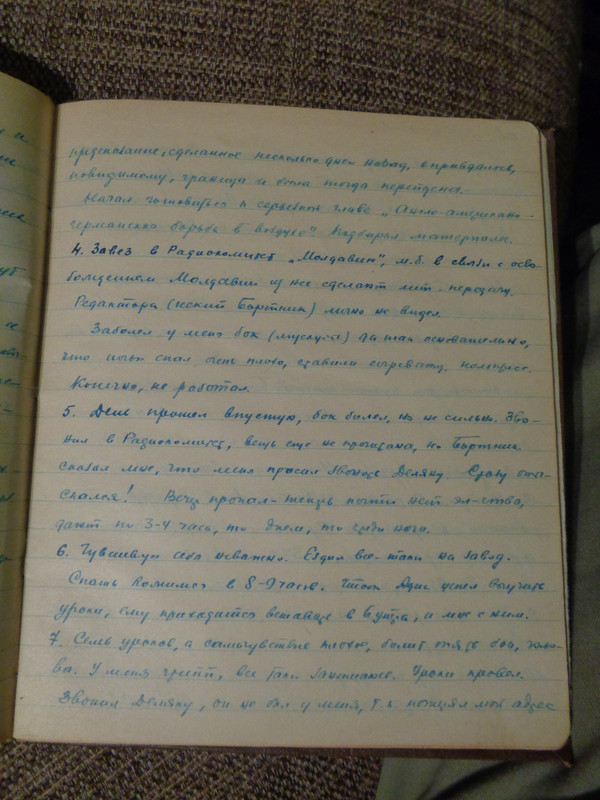 предсказание, сделанное несколько дней назад, оправдалось,
повидимому, граница и была тогда перейдена.
Начал готовиться к серьезной главе „Англо-американо-
германская борьба в воздухе". Подбирал материалы.
4. Завез в Радиокомитет „Молдавию", м.б. в связи с осво-
бождением Молдавии из нее сделают лит. передачу.
Редактора (некий Бортник) лично не видел.
Заболел у меня бок (мускулы) да так основательно,
что ночь спал очень плохо, ставили согревающ. компресс.
Конечно, не работал.
5. День прошел впустую, бок болел, но не сильно. Зво-
нил в Радиокомитет, вещь еще не прочитана, но Бортник
сказал мне, что меня просил звонить Деляну. Сразу оты-
скался! Вечер пропал - теперь почти нет эл-ства,
дают по 3-4 часа, то днем, то среди ночи.
6. Чувствую себя неважно. Ездил все-таки на завод.
Спать ложимся в 8-9 часов. Чтобы Адик успел выучить
уроки, ему приходится вставать в 6 утра, и мне с ним.
7. Семь уроков, а самочувствие плохое, болит опять бок, голо-
ва. У меня грипп, все таки занимаюсь. Уроки провел.
Звонил Деляну, он не был у меня, т.к. потерял мой адрес